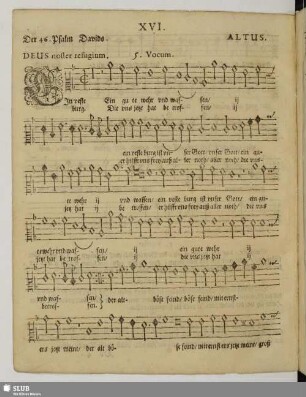 XVI.
Der 46. Psalm Davids. ALTUS.
DEUS noster refugium. 5. Vocum.
In veste Ein gu te wehr und waf- fen/ ij
burg. Die uns jetzt hat be trof- fen/ ij
ein veste burg ist un- ser Gott/ unser Gott/ ein gu-
er hilfft uns frey auß al- ler noth/ aller noth/ die uns
te wehr ij und waffen/ ein veste burg ist unser Gott/ ein gu-
jetzt hat ij be troffen/ er hilfft uns frey auß aller noth/ die uns
te wehr und waf- fen/ ij ein gute wehr ij
jetzt hat be trof- fen/ ij die uns jetzt hat
und waf- fen/ der alt- böse feind/ böse feind/ mit ernst-
betrof- fen.
ers jetzt meint/ der alt bö- se feind/ mit ernst ers jetzt meint/ groß
SLUB